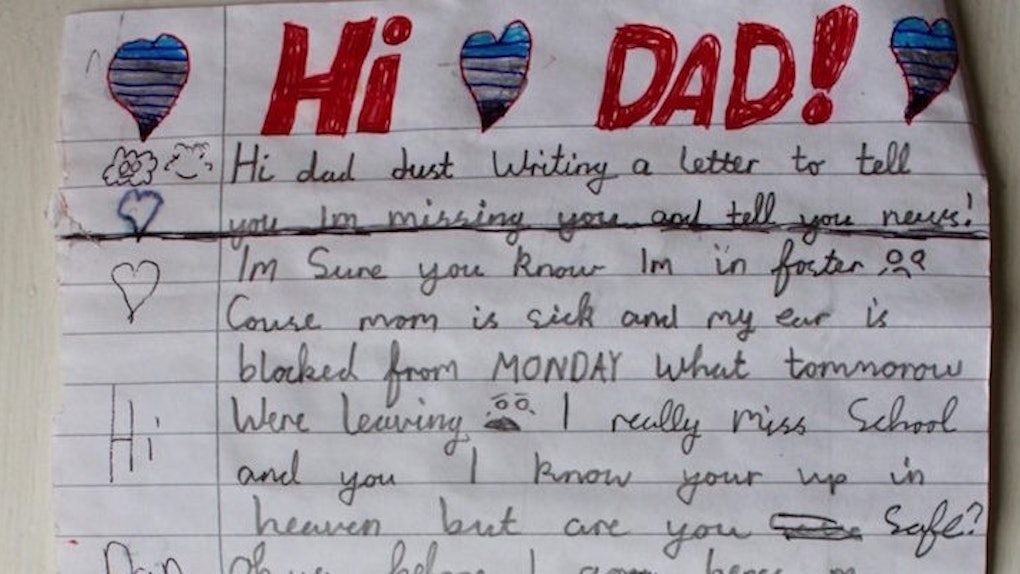 Hi DAD!
Hi dad Just Writing a letter to tell
you Im missing you and tell you news!
Im Sure you know Im in foster
Couse mom is sick and my ear is
blocked from MONDAY What tomnorow
Were leaving I really miss School
Hi
and you I know your up in
heaven but are you Safe?